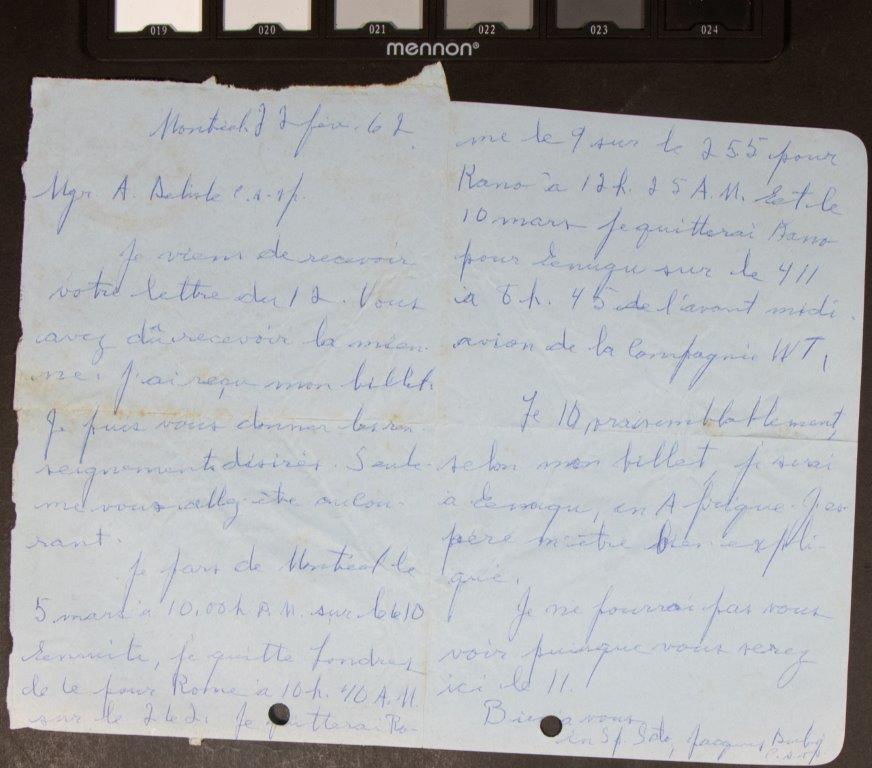 019 020 021 022 023 024
mennon®
Montréal 22 fév. 62
Mgr. A. Delisle c.s.sp.
Je viens de recevoir
votre lettre du 12. Vous
avez dû recevoir la mien-
ne. J'ai reçu mon billet.
Je puis vous donner les ren-
seignements désirés. Seule-
me vous allez être au cou-
rant.
Je pars de Montréal le
5 mars à 10.00 h P.M. sur le 610
Ensuite, je quitte Londres
le pour Rome à 10 h. 40 A.M.
sur le Je quitterai Ro-
me le 9 sur le 255 pour
Kano à 12 h. 25 A.M. Et le
10 mars je quitterai Kano
pour Enugu sur le 411
à 8 h. 45 de l'avant midi.
avion de la Compagnie WT,
Le 10, vraisemblablement,
selon mon billet, je serai
à Enugu, en Afrique. J'es-
père m'être bien expli-
qué.
Je ne pourrai pas vous
voir puisque vous serez
ici le 11.
Bien à vous
en Sp. Sto, Jacques Dubé
c.s.sp